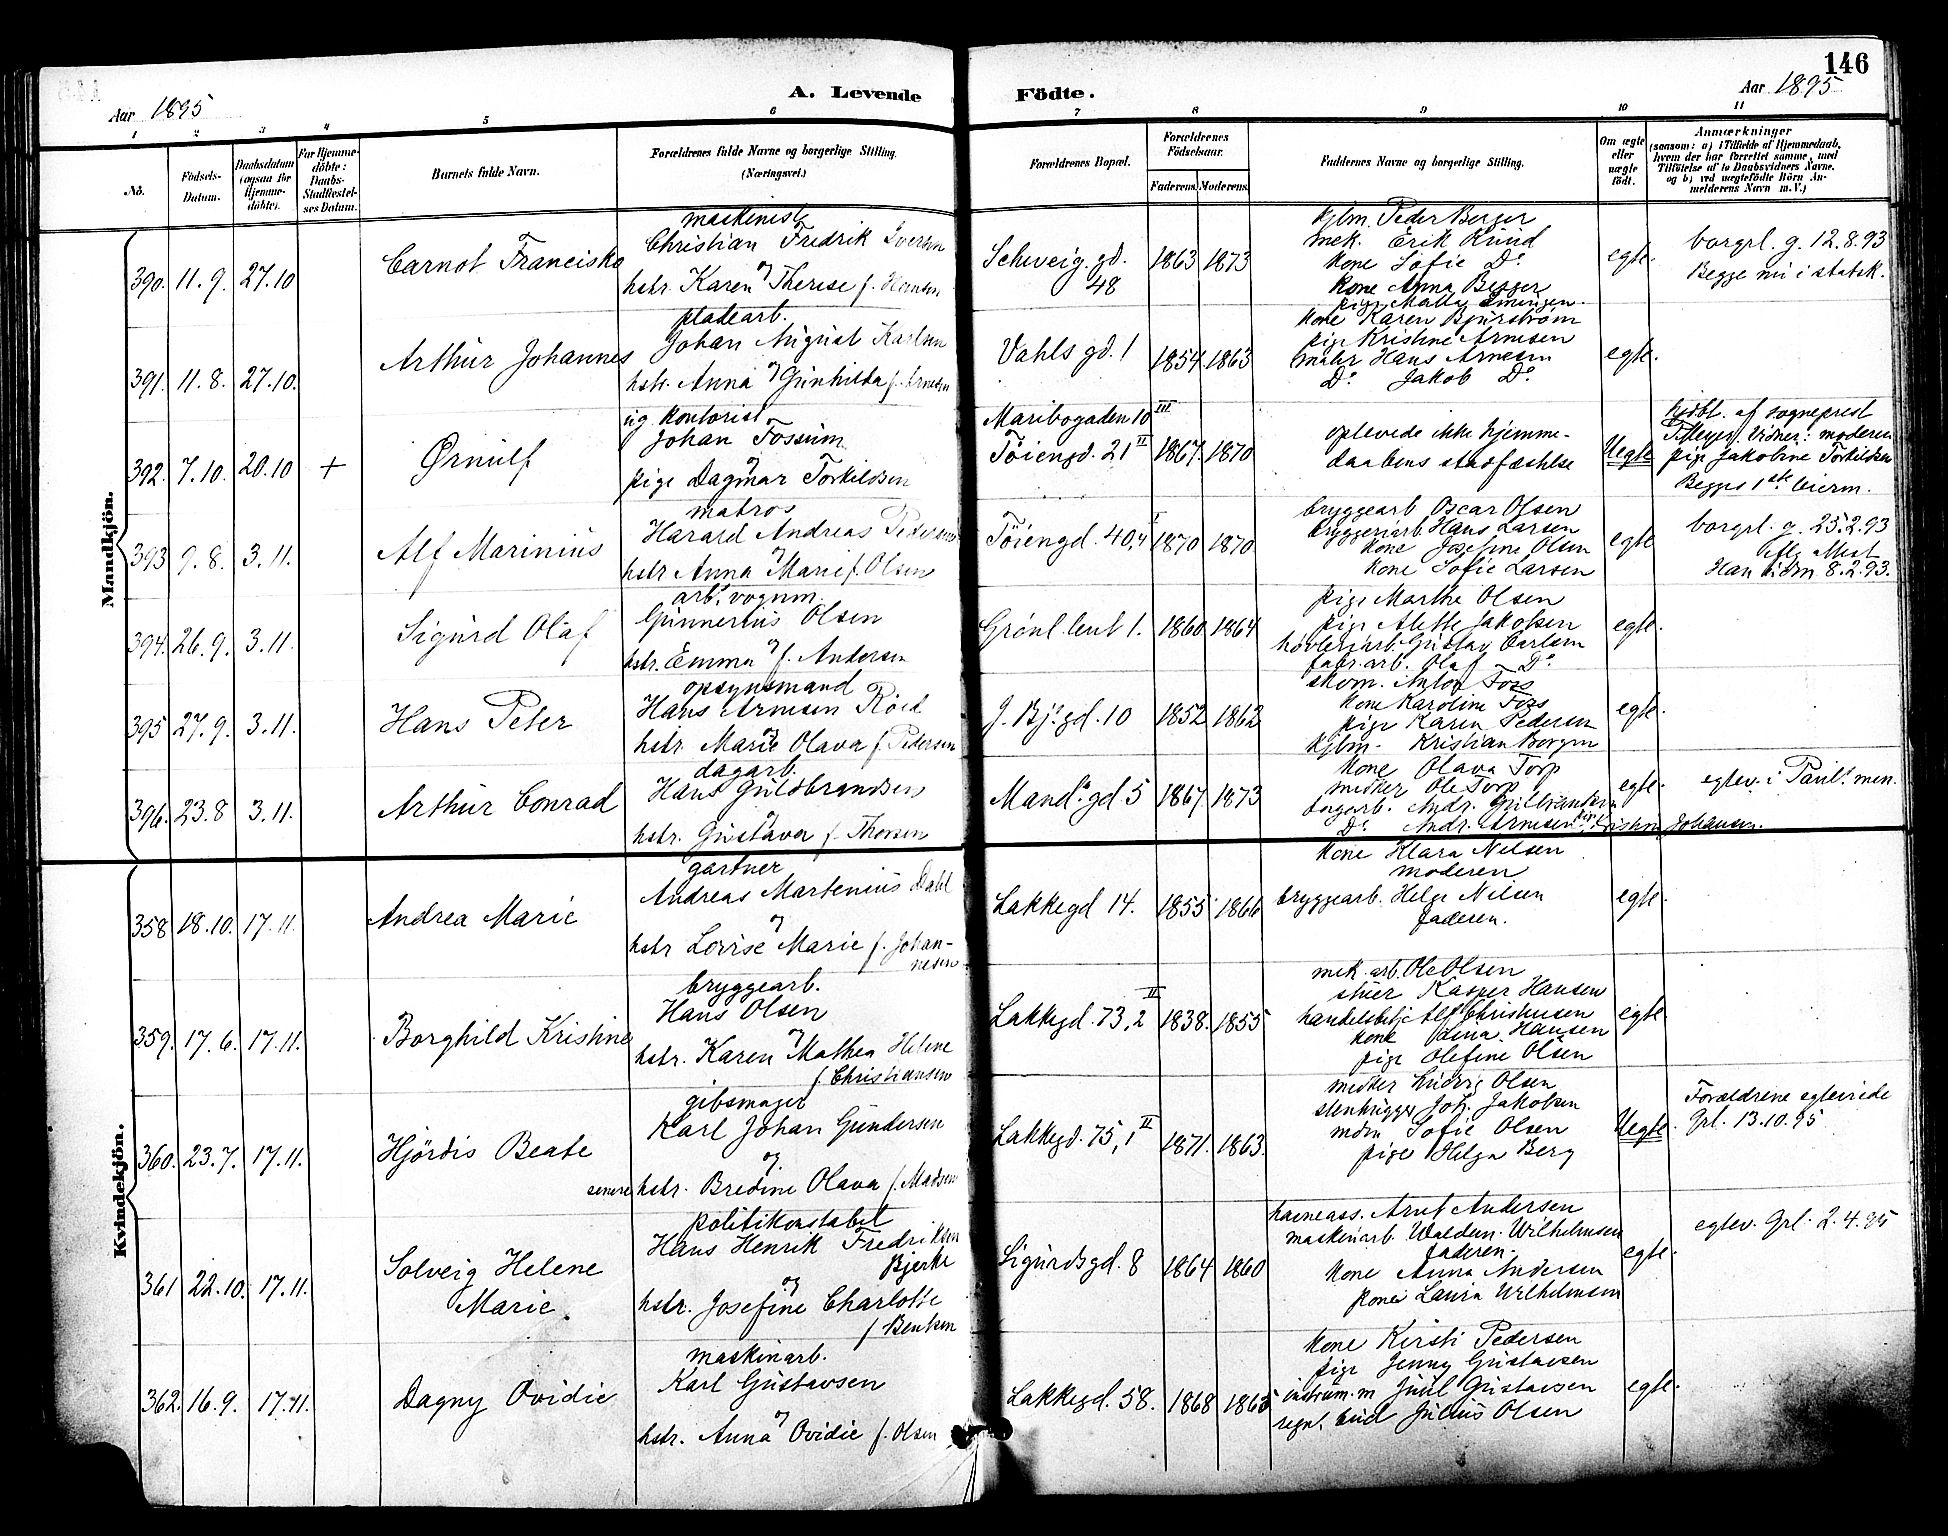 146
Aar 1895
A. Levende Födte.
Aar 1895
1 2 3 4 5 6 7 8 9 10 11
No.
Födsels-Datum.
Daabsdatum (ogsaa for Hjemme-döbte).
For Hjemme-döbte: Daabs-Stadfæstel-ses Datum.
Barnets fulde Navn.
Forældrenes fulde Navne og borgerlige Stilling. (Næringsvei.)
Forældrenes Bopæl.
Forældrenes Födselsaar.
Faderens. Moderens.
Faddernes Navne og borgerlige Stilling.
Om ægte eller uægte födt.
Anmærkninger
(saasom: a) i Tilfælde af Hjemmedaab,
hvem der har forrettet samme, med
Tilföielse af to Daabsvidners Navne.
og b) ved uægtefödte Börn An-
melderens Navn m. V.)
Mandkjön.
390. 11.9. 27.10 Carnot Francisko
maskinist
Christian Fredrik Iversen
og
hstr. Karen Therese f. Hansen
Schweig. gd. 48
1863 1873
kjlm. Peder Berger
mek. Erik Rund
kone Sofie Do
kone Anna Berger
pige
egte.
borgrl. g. 12.8.93
Begge nu i statsk.
391. 11.8. 27.10. Arthur Johannes
pladearb.
Johan August Karlsen
og
hstr. Anna Gunhilda f. Arnesen
Vahls gd. 1
1854. 1863
kone Karen Bjurström
pige Kristine Arnesen
Hans Arnesen
Do Jakob Do
egte.
392. 7.10. 20.10 + Ørnulf
ug kontorist
Johan Fossum
og
pige Dagmar Torkildsen
Maribogaden 10 III
Töiengd. 21 II
1867. 1870
oplevede ikke hjemme-
daabens stadfæstelse
Uegte
hjdbt. af sogneprest
Meyer. Vidner: moderen
pige Jakobine Torkildsen
Begges 1ste leierm.
393 9.8. 3.11. Alf Marinius
matros
Harard Andreas Pedersen
og
hstr Anna Marie f. Olsen
Töiengd. 40,
1870 1870
bryggearb Oscar Olsen
bryggeriarb. Hans Larsen
kone Josefine Olsen
kone Sofie Larsen
egte
borgrl. g. 25.2.93
Han 8.2.93.
394. 26.9. 3.11. Sigurd Olaf
arb. vognm.
Gunnerius Olsen
og
hstr. Emma f. Andersen
Grönl. 1.
1860 1864
pige Marthe Olsen
pige Alette Jakobsen
hövleriarb. Gustav Carlsen
fabr. arb. Olaf Do
egte.
395 27.9. 3.11. Hans Peter
opsynsmand
Hans Arnesen Röed
og
hstr. Marie Olava f. Pedersen
J. Bj. gd. 10
1852 1862
skom. Anton Foss
kone Karoline Foss
pige Karen Pedersen
kjlm. Kristian Borgen
egte.
396. 23.8 3.11. Arthur Conrad
dagarb.
Hans Guldbrandsen
og
hstr. Gustava f. Thorsen
Mands gd. 5
1867 1873
kone Olava Torp
Ole Torp
dagarb. Andr. Gulbrandsen
Do Andr. Arnesen, pige Johansen.
egte.
egtev. i Pauls men.
Kvindekjön.
358 18.10. 17.11. Andrea Marie
gartner
Andreas Martenius Dahl
og
hstr Lovise Marie f. Johan-
nesen
Lakkegd 14.
1855 1866
kone Klara Nilsen
moderen
bryggearb. Helge Nilsen
faderen.
egte.
359. 17.6. 17.11. Borghild Kristine
bryggearb.
Hans Olsen
og
hstr. Karen Mathea Helene
f. Christiansen
Lakkegd. 73, 2 II
1838. 1855
mek. arb. Ole Olsen
Kasper Hansen
handelsbetj. Alf Christensen
kone Hansen
pige Olefine Olsen
egte.
360. 23.7. 17.11. Hjördis Beate
gibsmager
Karl Johan Gundersen
og
senere hstr. Bredine Olava f. Madsen
Lakkegd. 75, 1 II
1871. 1863.
Ludvig Olsen
stenhugger Joh. Jakobsen
Sofie Olsen
pige Helga Berg
Uegte.
Forældrene egteviede
Grl. 13.10.95
361 22.10. 17.11. Solveig Helene
Marie.
politikonstabel
Hans Henrik Fredriksen
Bjerke
og
hstr. Josefine Charlotte
f. Bentsen
Sigurds gd. 8
1864 1860
havneass. Arnt Andersen
maskinarb. Waldem. Wilhelmsen
faderen.
kone Anna Andersen
kone Laura Wilhelmsen
egte.
egtev. Grl. 2.4.95
362. 16.9. 17.11. Dagny Ovidie
maskinarb.
Karl Gustavsen
og
hstr. Anna Ovidie f. Olsen
Lakkegd. 58.
1868 1865
kone Kirsti Pedersen
pige Jenny Gustavsen
instrum. m Juul Gustavsen
regnl. bud Julius Olsen
egte.